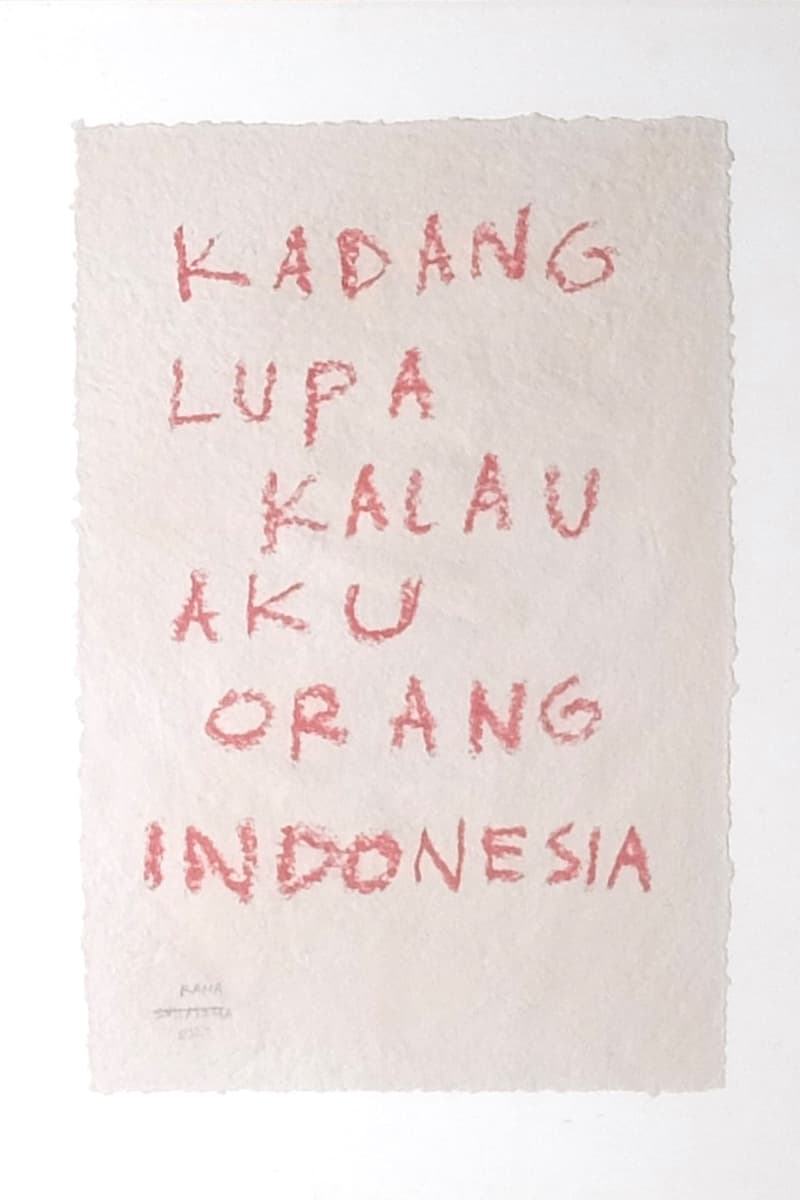 KADANG
LUPA
KALAU
AKU
ORANG
INDONESIA